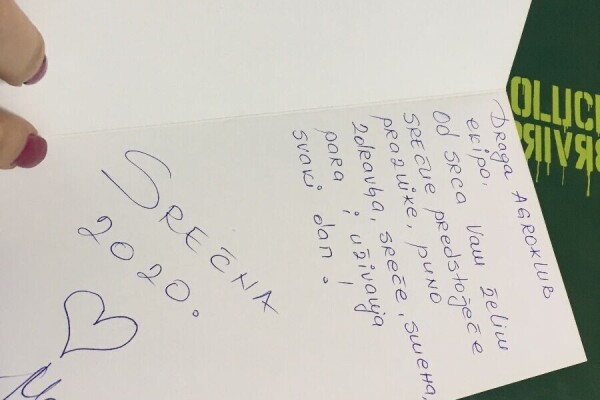 Draga AGROKLUB
ekipo,
Vam želim
Od srca
srećne predstojeće
praznike, puno
zdravlja, sreće, smeha,
para i uživanja
svaki dan!
SREĆNA
2020.
OLUC